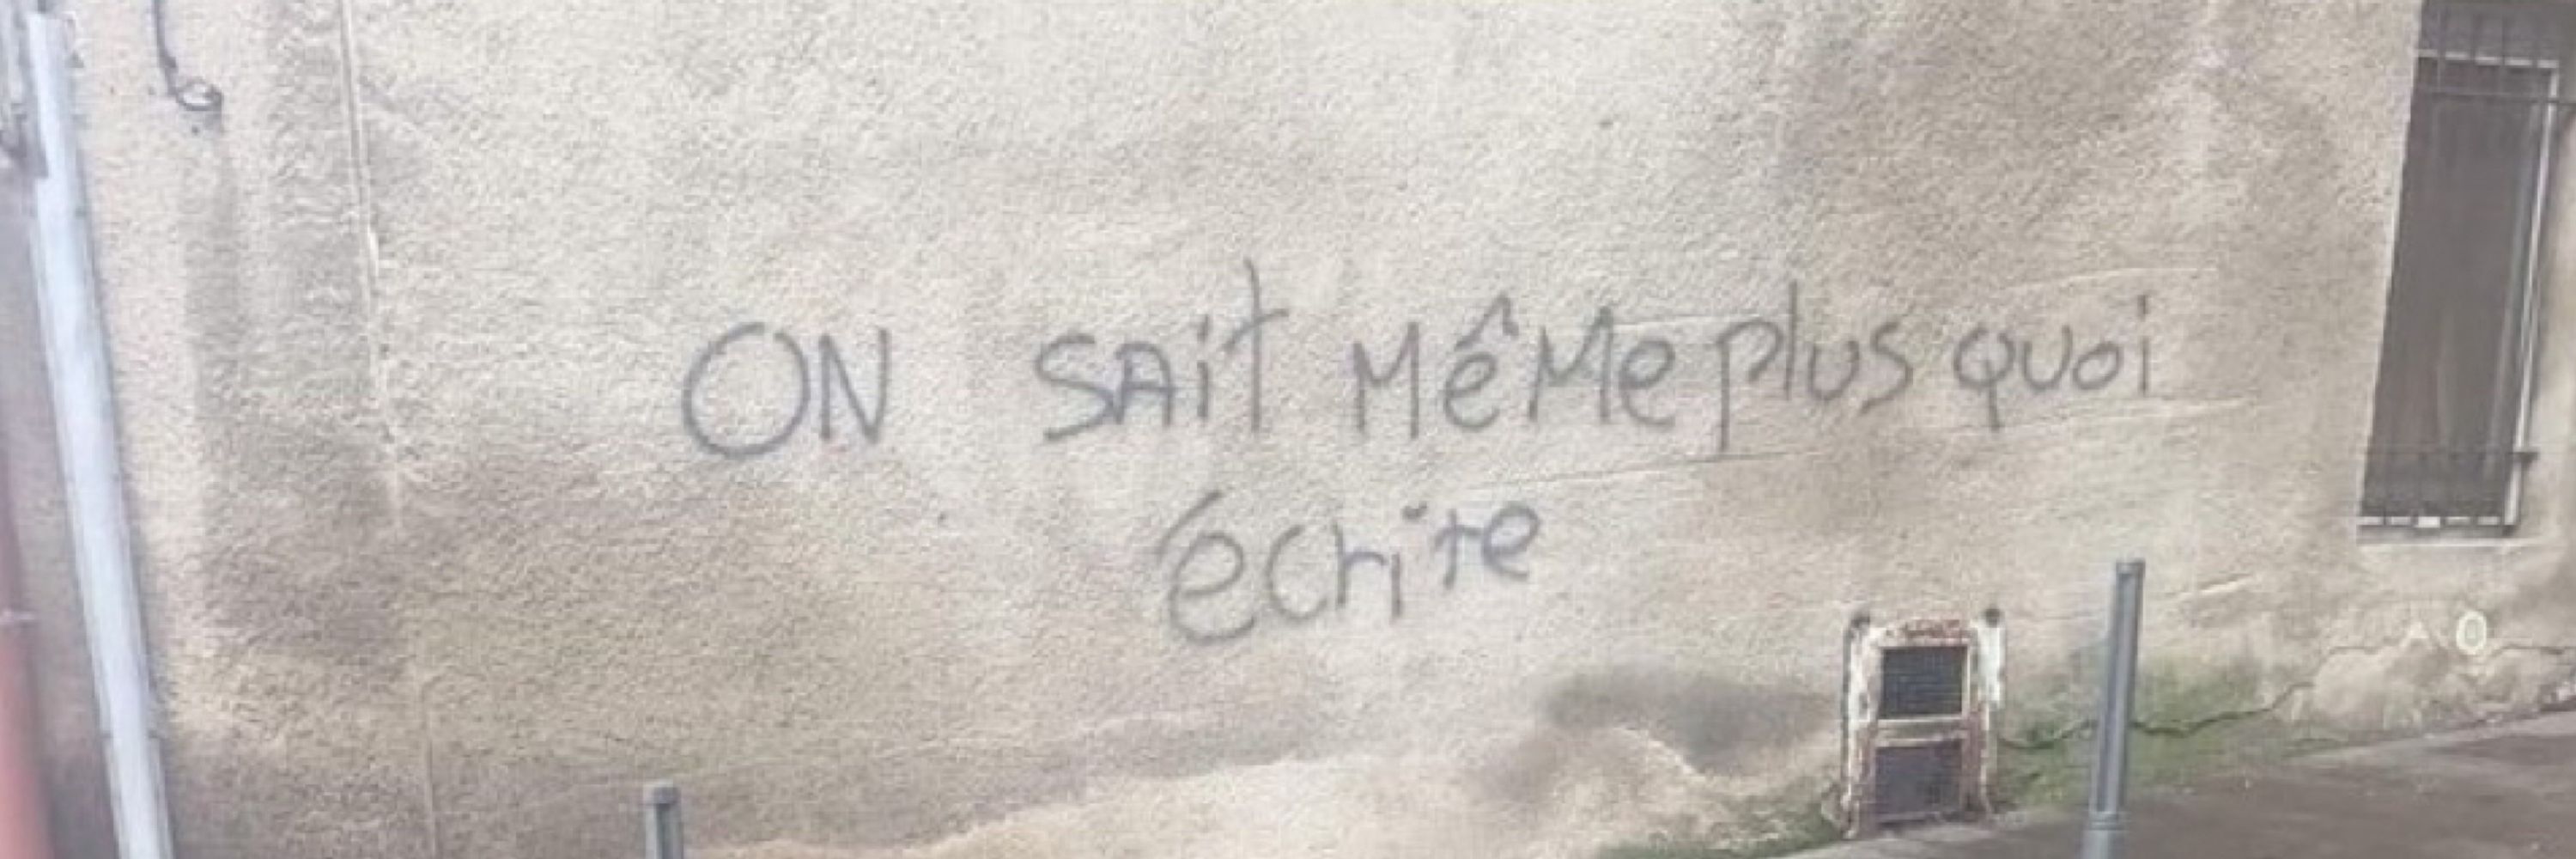 ON SAiT MêMe plus quoi
écrire